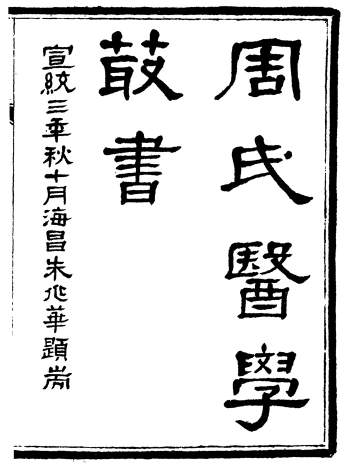 周氏醫學
叢書
宣統三年秋十月海昌朱兆華題耑